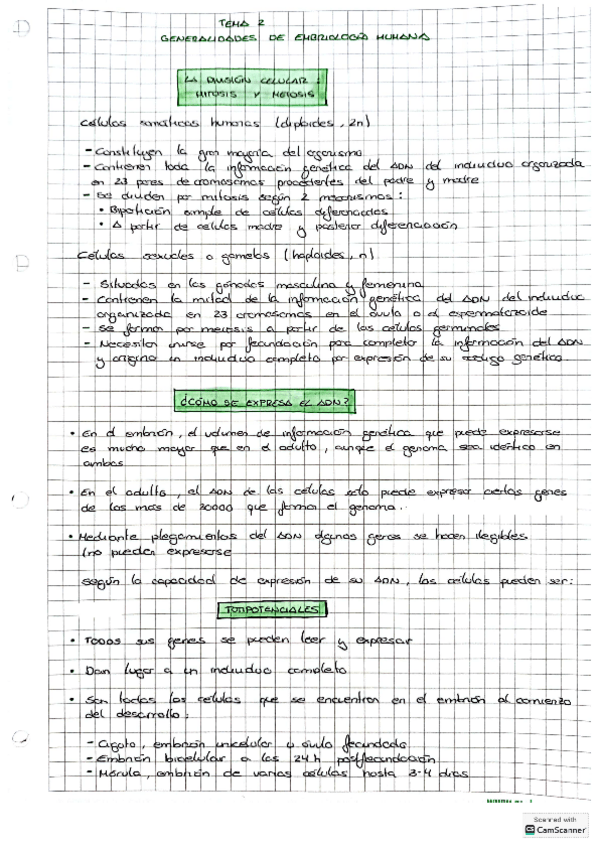 TEMA 2
GENERALIDADES DE EMBRIOLOGÍA HUMANA
LA DIVISIÓN CELULAR :
MITOSIS Y MEIOSIS
Células somáticas humanas (diploides, 2n)
- Constituyen la gran mayoría del organismo
- Contienen toda la información genética del ADN del individuo organizada
en 23 pares de cromosomas procedentes del padre y madre
- Se dividen por mitosis según 2 mecanismos :
• Bipartición simple de células diferenciadas
• A partir de células madre y posterior diferenciación
Células sexuales o gametos (haploides, n)
- Situadas en las gónadas masculina y femenina
- Contienen la mitad de la información genética del ADN del individuo
organizada en 23 cromosomas en el óvulo o el espermatozoide
- Se forman por meiosis a partir de las células germinales
- Necesitan unirse por fecundación para completar la información del ADN
y origina un individuo completo por expresión de su código genético
¿CÓMO SE EXPRESA EL ADN?
• En el embrión, el volumen de información genética que puede expresarse
es mucho mayor que en el adulto, aunque el genoma sea idéntico en
ambos
• En el adulto, el ADN de las células solo puede expresar ciertos genes
de los más de 20000 que forman el genoma.
• Mediante plegamientos del ADN algunos genes se hacen ilegibles
(no pueden expresarse
Según la capacidad de expresión de su ADN, las células pueden ser:
TOTIPOTENCIALES
• Todos sus genes se pueden leer y expresar
• Dan lugar a un individuo completo
• Son todas las células que se encuentran en el embrión al comienzo
del desarrollo:
- Cigoto, embrión unicelular u óvulo fecundado
- Embrión bicelular a las 24h postfecundación
- Mórula, embrión de varias células hasta 3-4 días
Scanned with
CS CamScanner